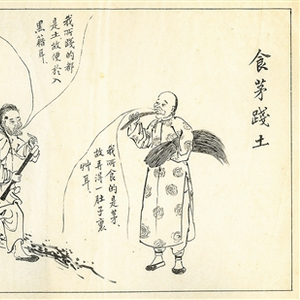 食茅踐土
我所食的是茅、
故弄得一肚子裏
艸耳、
我所踐的都
是土故便於入
黑籍耳、